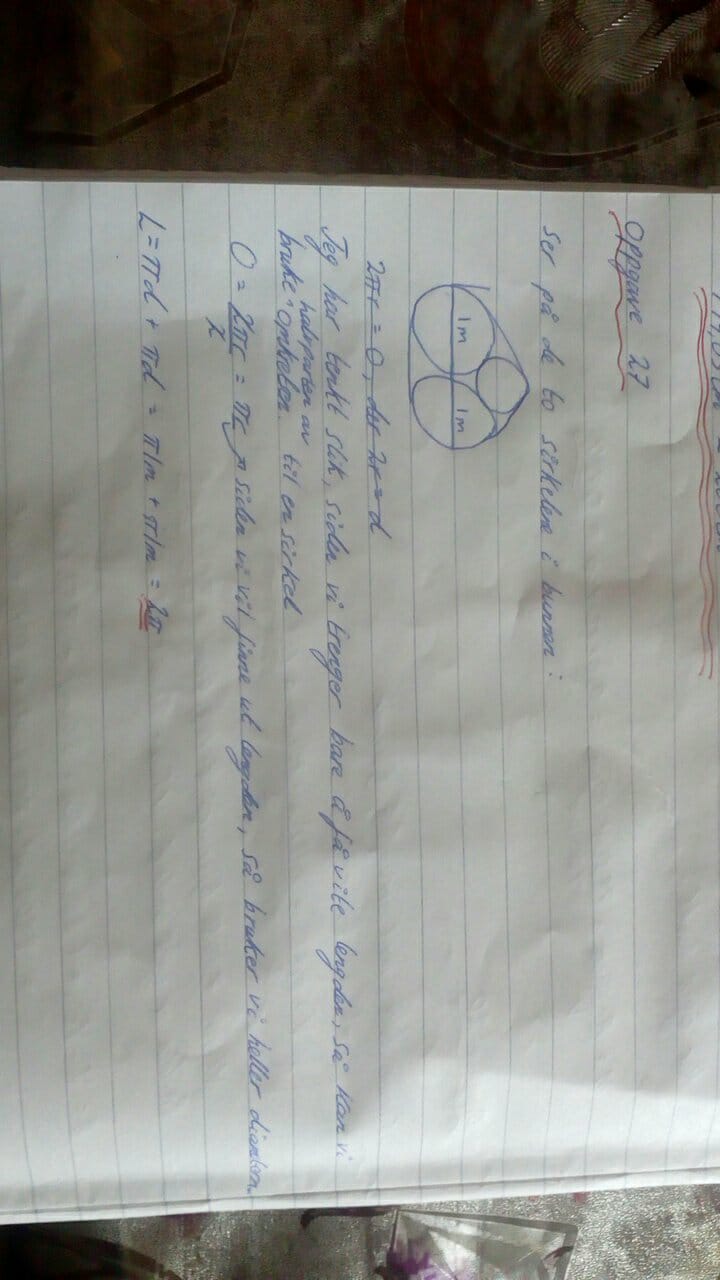 Oppgave 27
Ser på de to sirkelene i bunnen:
1m 1m
2πr = O, der 2r = d
Jeg har tenkt slik, siden vi trenger bare å få vite lengden, så kan vi
halvparten av
bruke omkretsen til en sirkel
O = 2πr/2 = πr → siden vi vil finne ut lengden, så bruker vi heller diameteren.
L = πd + πd = π1m + π1m = 2π